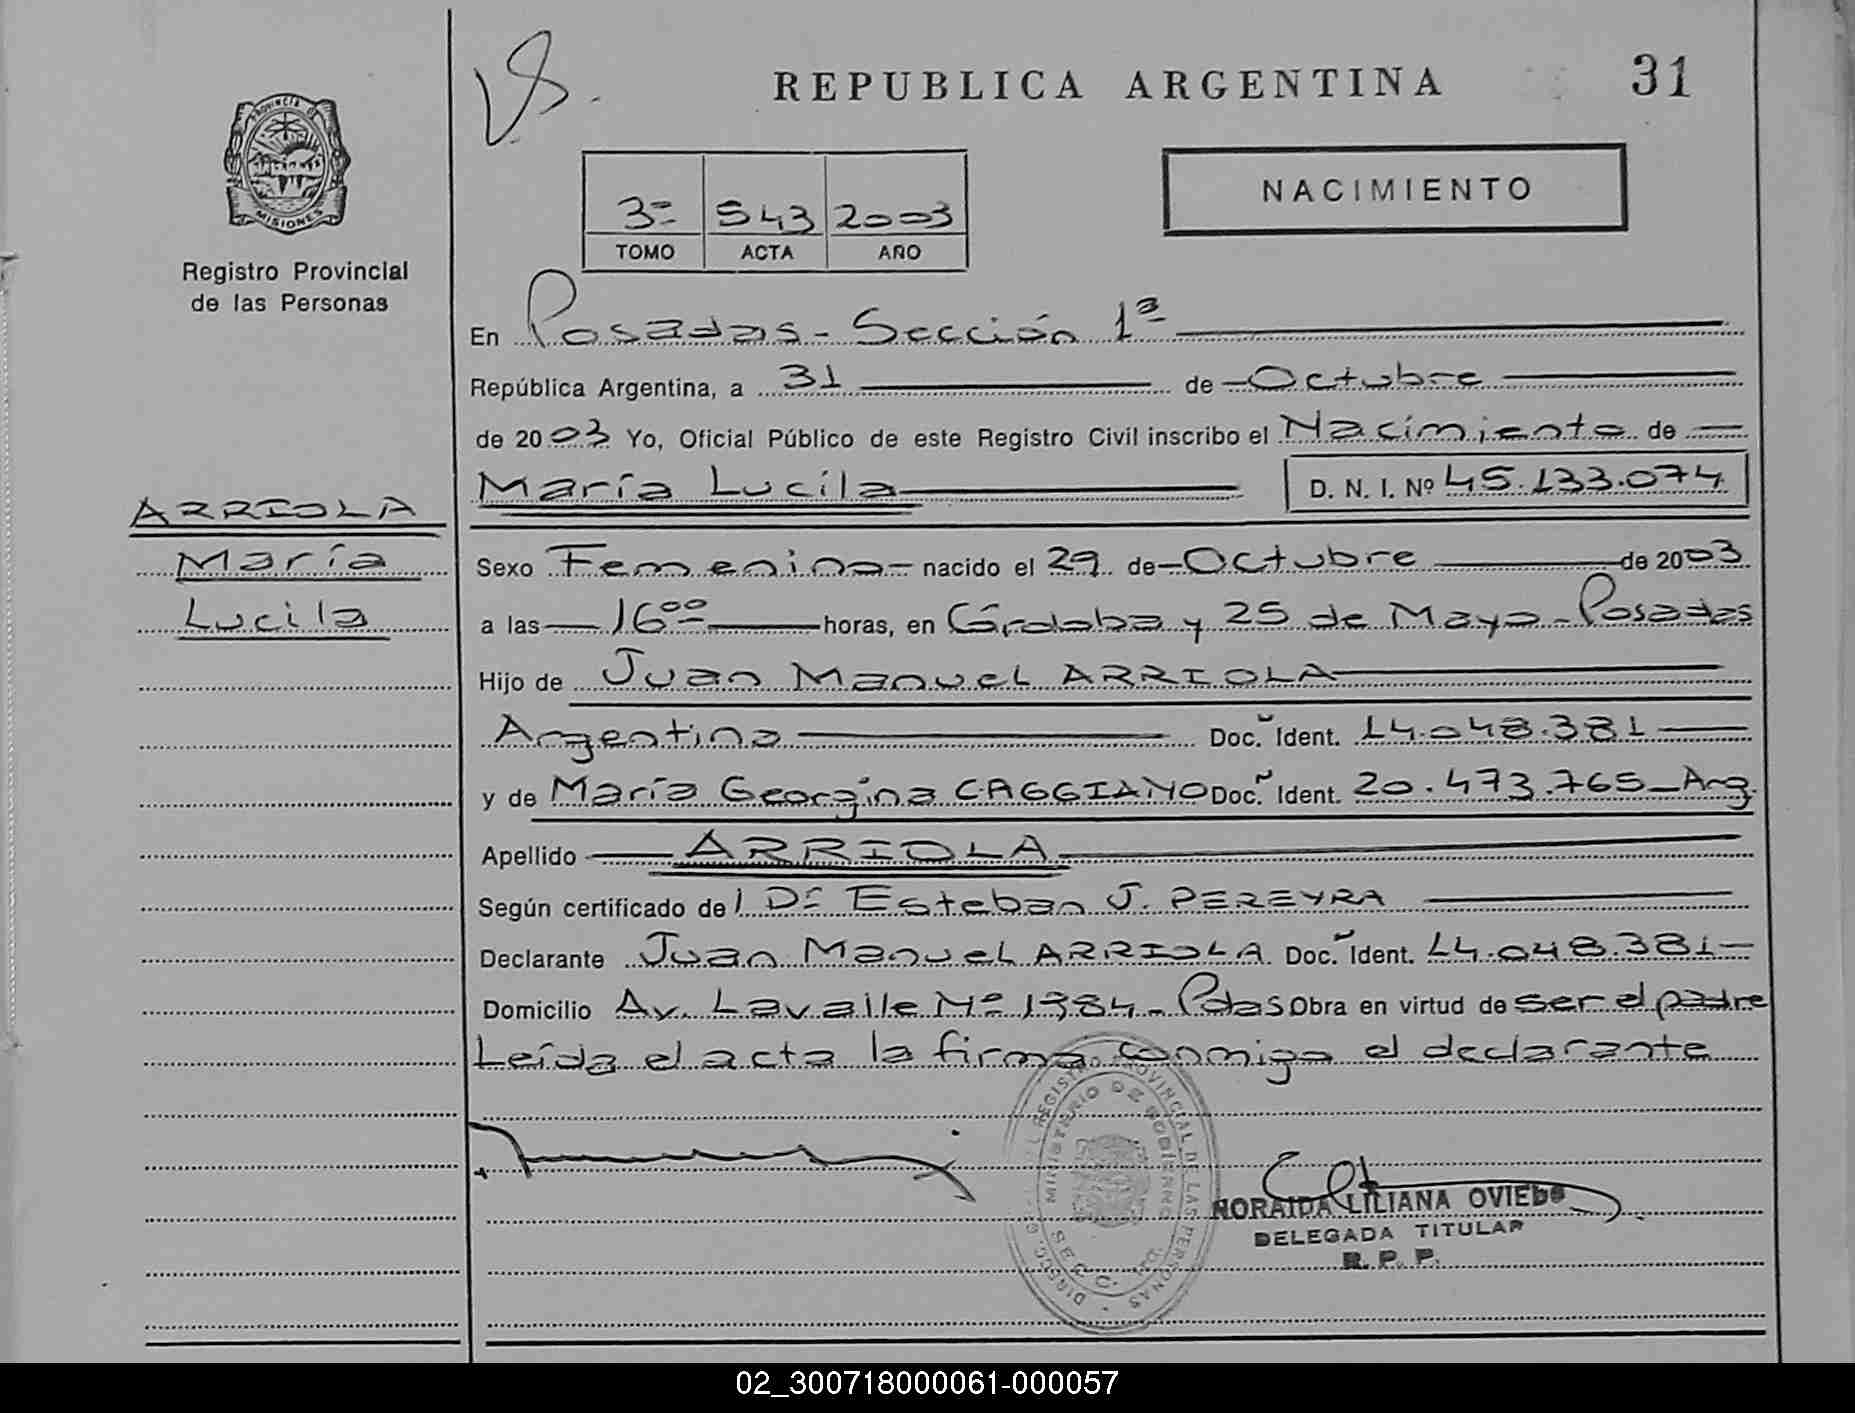 REPUBLICA ARGENTINA
31
PROVINCIA DE
MISIONES
Registro Provincial
de las Personas
NACIMIENTO
3º 543 2003
TOMO ACTA AÑO
En Posadas - Sección 1ª
República Argentina, a 31 de Octubre
de 2003 Yo, Oficial Público de este Registro Civil inscribo el Nacimiento de
María Lucila D. N. I. Nº 45.133.074
ARRIOLA
María
Lucila
Sexo Femenino nacido el 29 de Octubre de 2003
a las 16ºº horas, en Córdoba y 25 de Mayo - Posadas
Hijo de Juan Manuel ARRIOLA
Argentino Doc. Ident. 14.048.381
y de María Georgina CAGGIANO Doc. Ident. 20.473.765 - Arg.
Apellido ARRIOLA
Según certificado del Dr Esteban J. PEREYRA
Declarante Juan Manuel ARRIOLA Doc. Ident. 14.048.381
Domicilio Av. Lavalle Nº 1384 - Pdas Obra en virtud de ser el padre
Leída el acta la firma conmigo el declarante
REGISTRO PROVINCIAL DE LAS PERSONAS
MINISTERIO DE GOBIERNO
NORAIDA LILIANA OVIEDO
DELEGADA TITULAR
R. P. P.
02_300718000061-000057